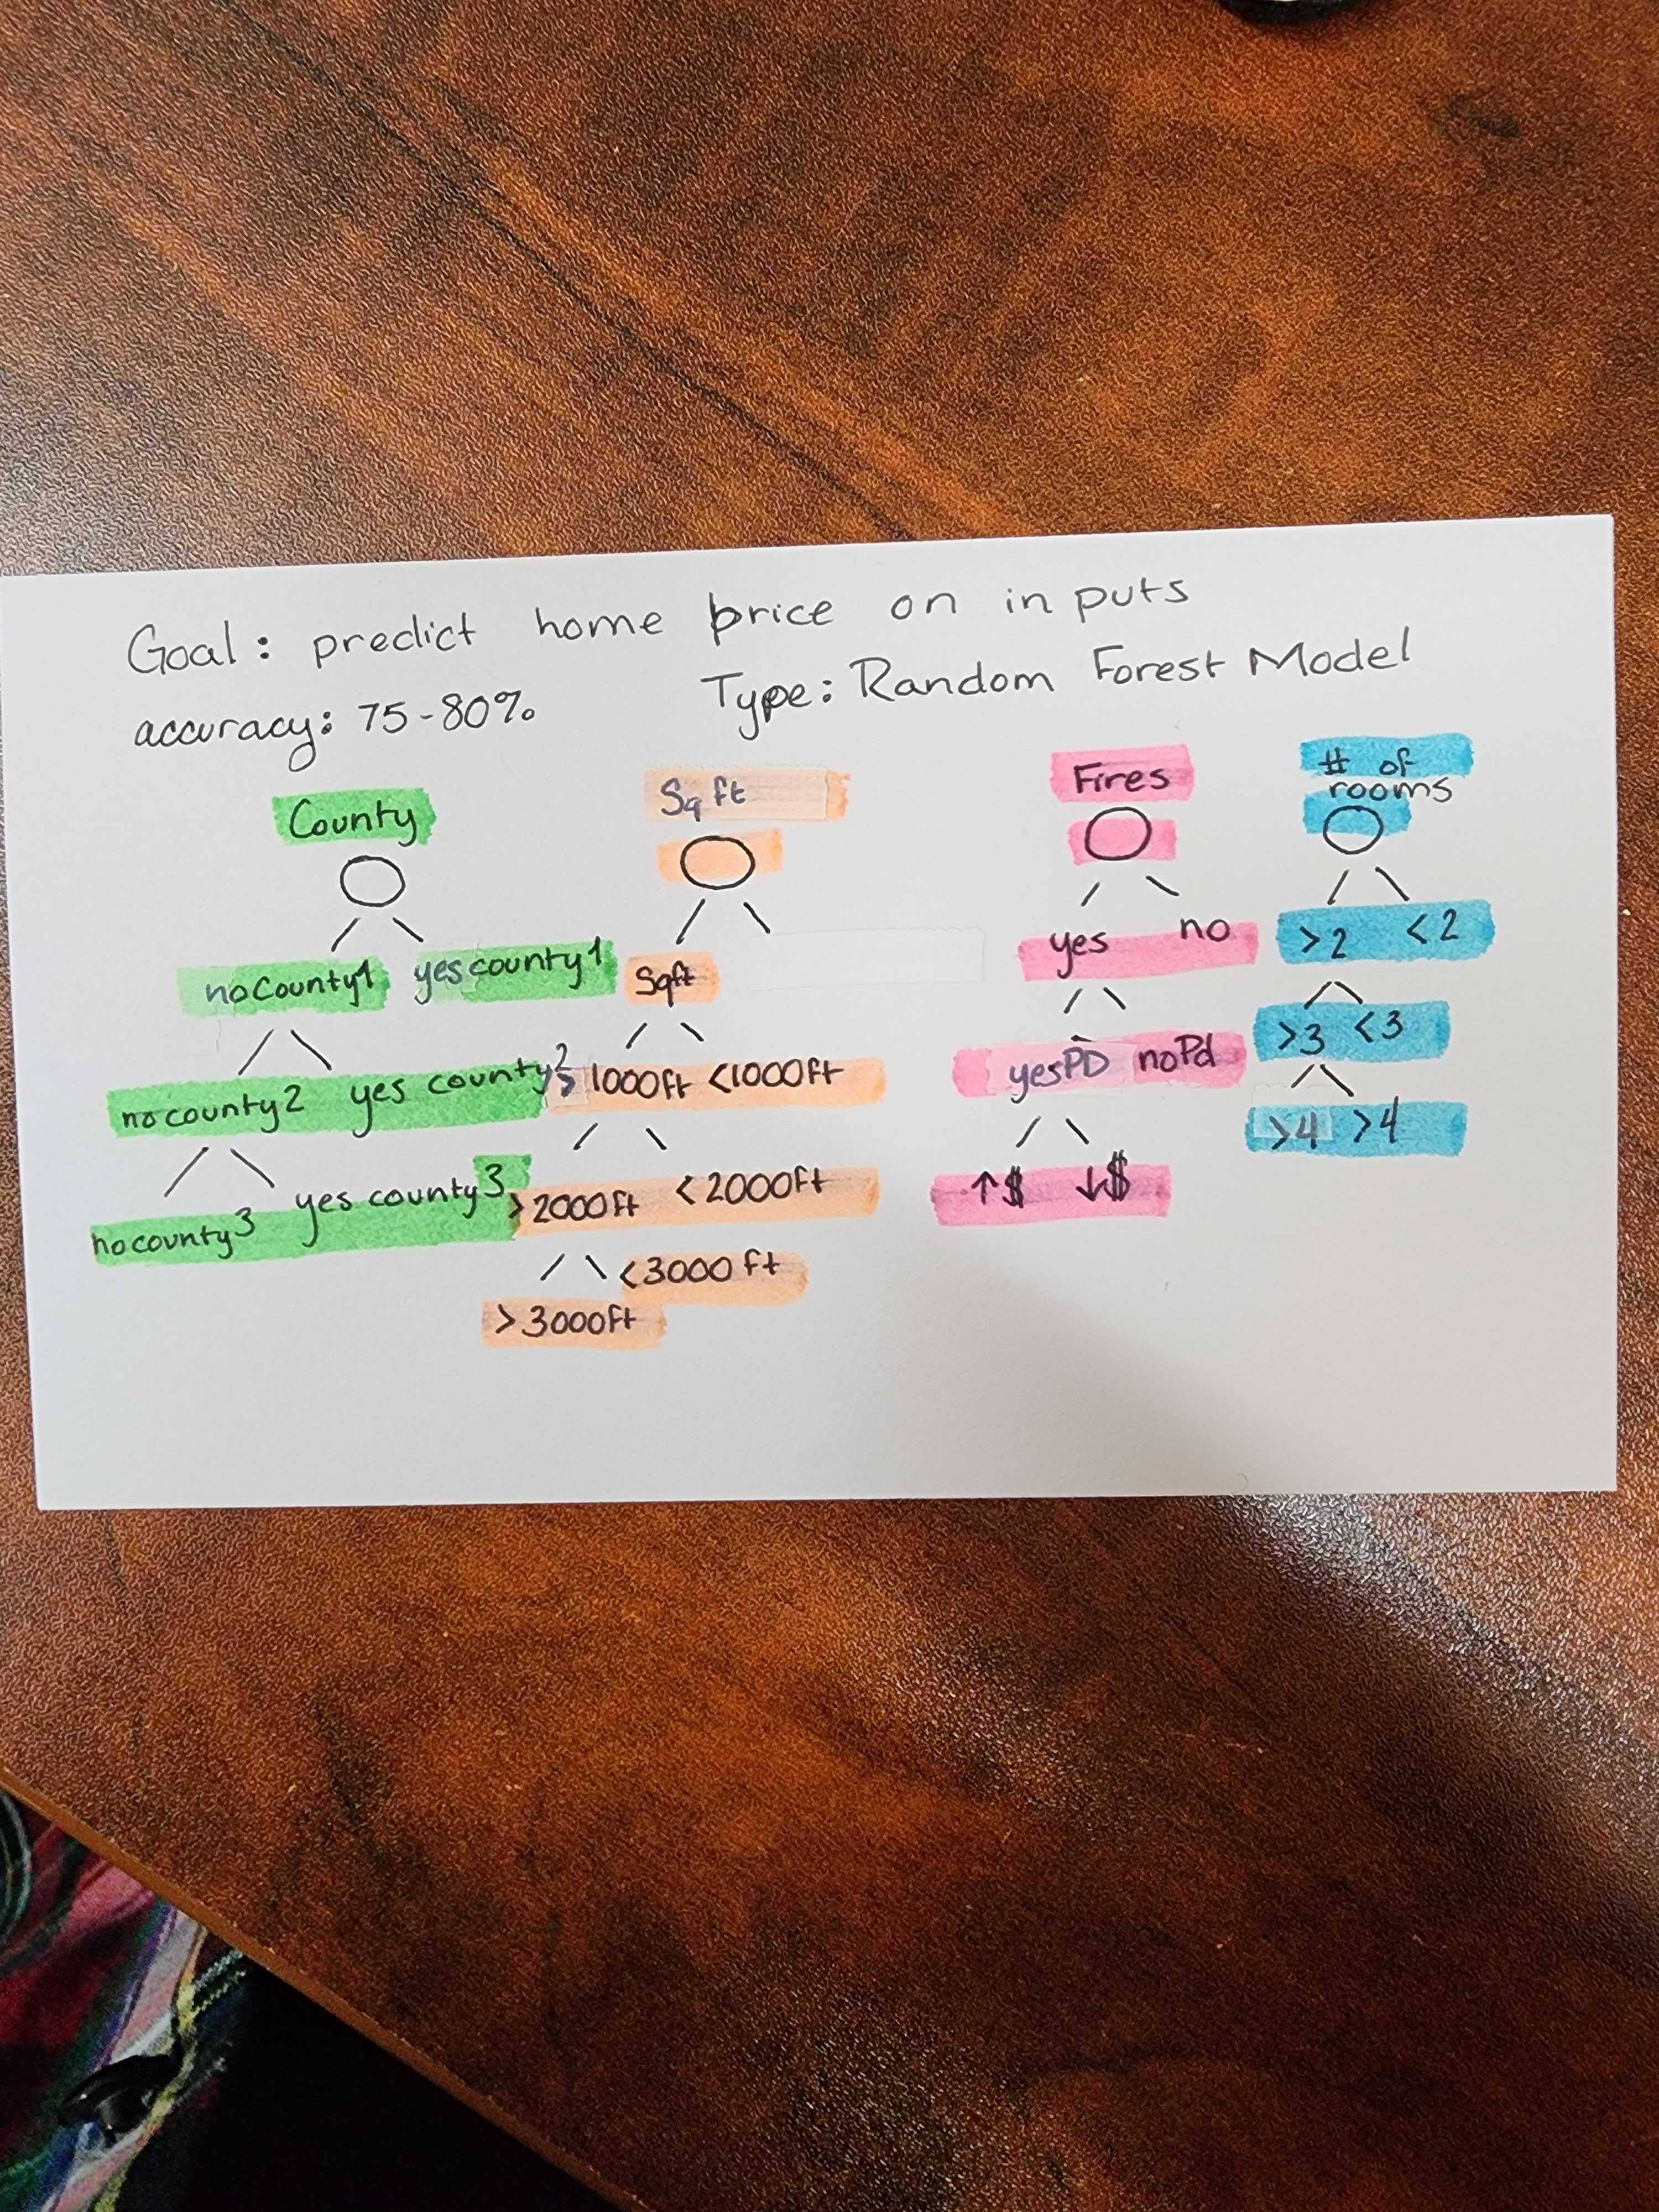 Goal: predict home price on inputs
accuracy: 75-80%
Type: Random Forest Model
County
no County1 yes county1
no county2 yes county2
no county3 yes county3
Sq ft
Sqft
> 1000ft <1000ft
>2000ft <2000ft
>3000ft <3000 ft
Fires
yes no
yes PD no Pd
↑$ ↓$
# of
rooms
>2 <2
>3 <3
>4 >4